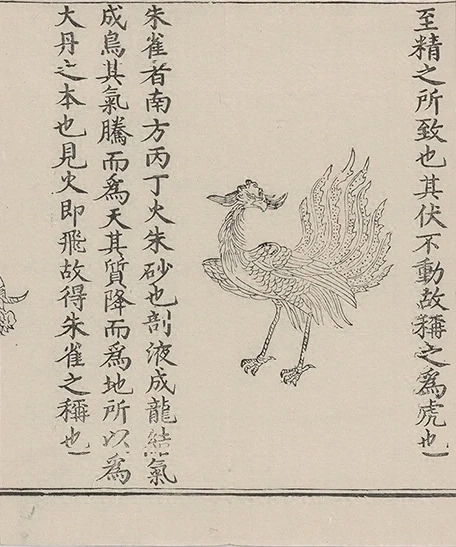 至精之所致也其伏不動故稱之爲虎也
朱雀者南方丙丁火朱砂也剖液成龍結氣
成鳥其氣騰而爲天其質降而爲地所以爲
大丹之本也見火即飛故得朱雀之稱也